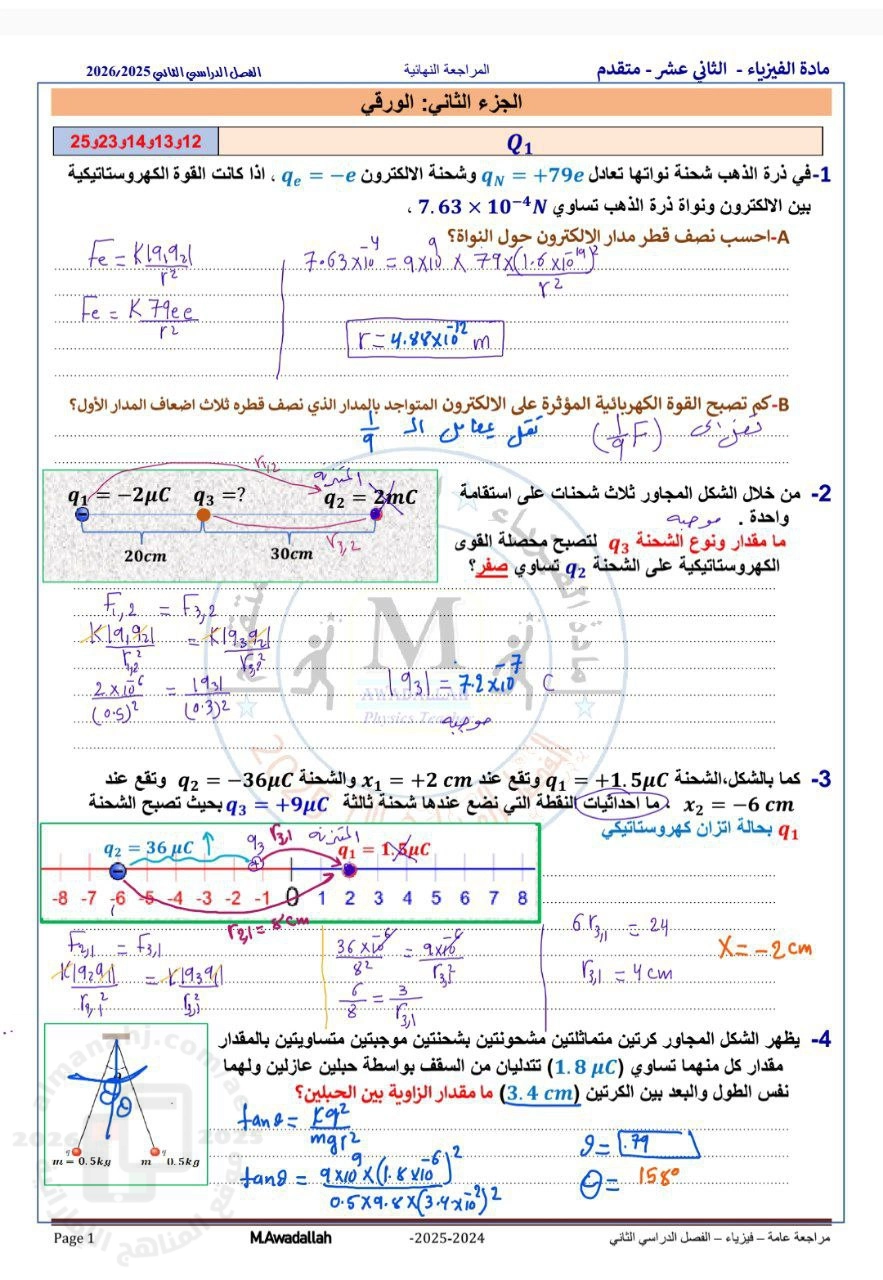 مادة الفيزياء - الثاني عشر - متقدم
المراجعة النهائية
الفصل الدراسي الثاني 2026/2025
الجزء الثاني: الورقي
Q₁
12و13و14و23و25
1-في ذرة الذهب شحنة نواتها تعادل q_N = +79e وشحنة الالكترون q_e = −e ، اذا كانت القوة الكهروستاتيكية
بين الالكترون ونواة ذرة الذهب تساوي 7.63 × 10⁻⁴N ،
A-احسب نصف قطر مدار الالكترون حول النواة؟
Fe = K|q₁q₂| / r²
7.63x10⁻⁴ = 9x10⁹ x 79x(1.6x10⁻¹⁹)² / r²
Fe = K 79ee / r²
r = 4.88x10⁻¹² m
B-كم تصبح القوة الكهربائية المؤثرة على الالكترون المتواجد بالمدار الذي نصف قطره ثلاث اضعاف المدار الأول؟
تقل الى (1/9 F) تقل بمعامل الـ 1/9
2- من خلال الشكل المجاور ثلاث شحنات على استقامة
واحدة . موجبه
ما مقدار ونوع الشحنة q₃ لتصبح محصلة القوى
الكهروستاتيكية على الشحنة q₂ تساوي صفر؟
r₁,₂
المتزنة
q₁ = −2μC q₃ =? q₂ = 2mC
r₃,₂
20cm 30cm
F₁,₂ = F₃,₂
K|q₁q₂| / r₁,₂² = K|q₃q₂| / r₃,₂²
2x10⁻⁶ / (0.5)² = |q₃| / (0.3)²
|q₃| = 7.2x10⁻⁷ C
موجبه
M
AWADALLAH
Physics Teacher
مادة الفيزياء
3- كما بالشكل،الشحنة q₁ = +1.5μC وتقع عند x₁ = +2 cm والشحنة q₂ = −36μC وتقع عند
x₂ = −6 cm ، ما احداثيات النقطة التي نضع عندها شحنة ثالثة q₃ = +9μC بحيث تصبح الشحنة
q₁ بحالة اتزان كهروستاتيكي
q₂ = 36 μC q₃ r₃,₁ المتزنة q₁ = 1.5μC
-8 -7 -6 -5 -4 -3 -2 -1 0 1 2 3 4 5 6 7 8
r₂,₁ = 8cm
F₂,₁ = F₃,₁
K|q₂q₁| / r₂,₁² = K|q₃q₁| / r₃,₁²
36x10⁻⁶ / 8² = 9x10⁻⁶ / r₃,₁²
6/8 = 3/r₃,₁
6r₃,₁ = 24
r₃,₁ = 4cm
X = −2cm
4- يظهر الشكل المجاور كرتين متماثلتين مشحونتين بشحنتين موجبتين متساويتين بالمقدار
مقدار كل منهما تساوي (1.8 μC) تتدليان من السقف بواسطة حبلين عازلين ولهما
نفس الطول والبعد بين الكرتين (3.4 cm) ما مقدار الزاوية بين الحبلين؟
θ
q q
m = 0.5kg m 0.5kg
tanθ = Kq² / mgr²
tanθ = 9x10⁹x(1.8x10⁻⁶)² / 0.5x9.8x(3.4x10⁻²)²
θ = .79
θ = 158°
almanahj.com/ae
2026 2025
موقع المناهج الإماراتية
Page 1
M.Awadallah
-2025-2024
مراجعة عامة – فيزياء – الفصل الدراسي الثاني